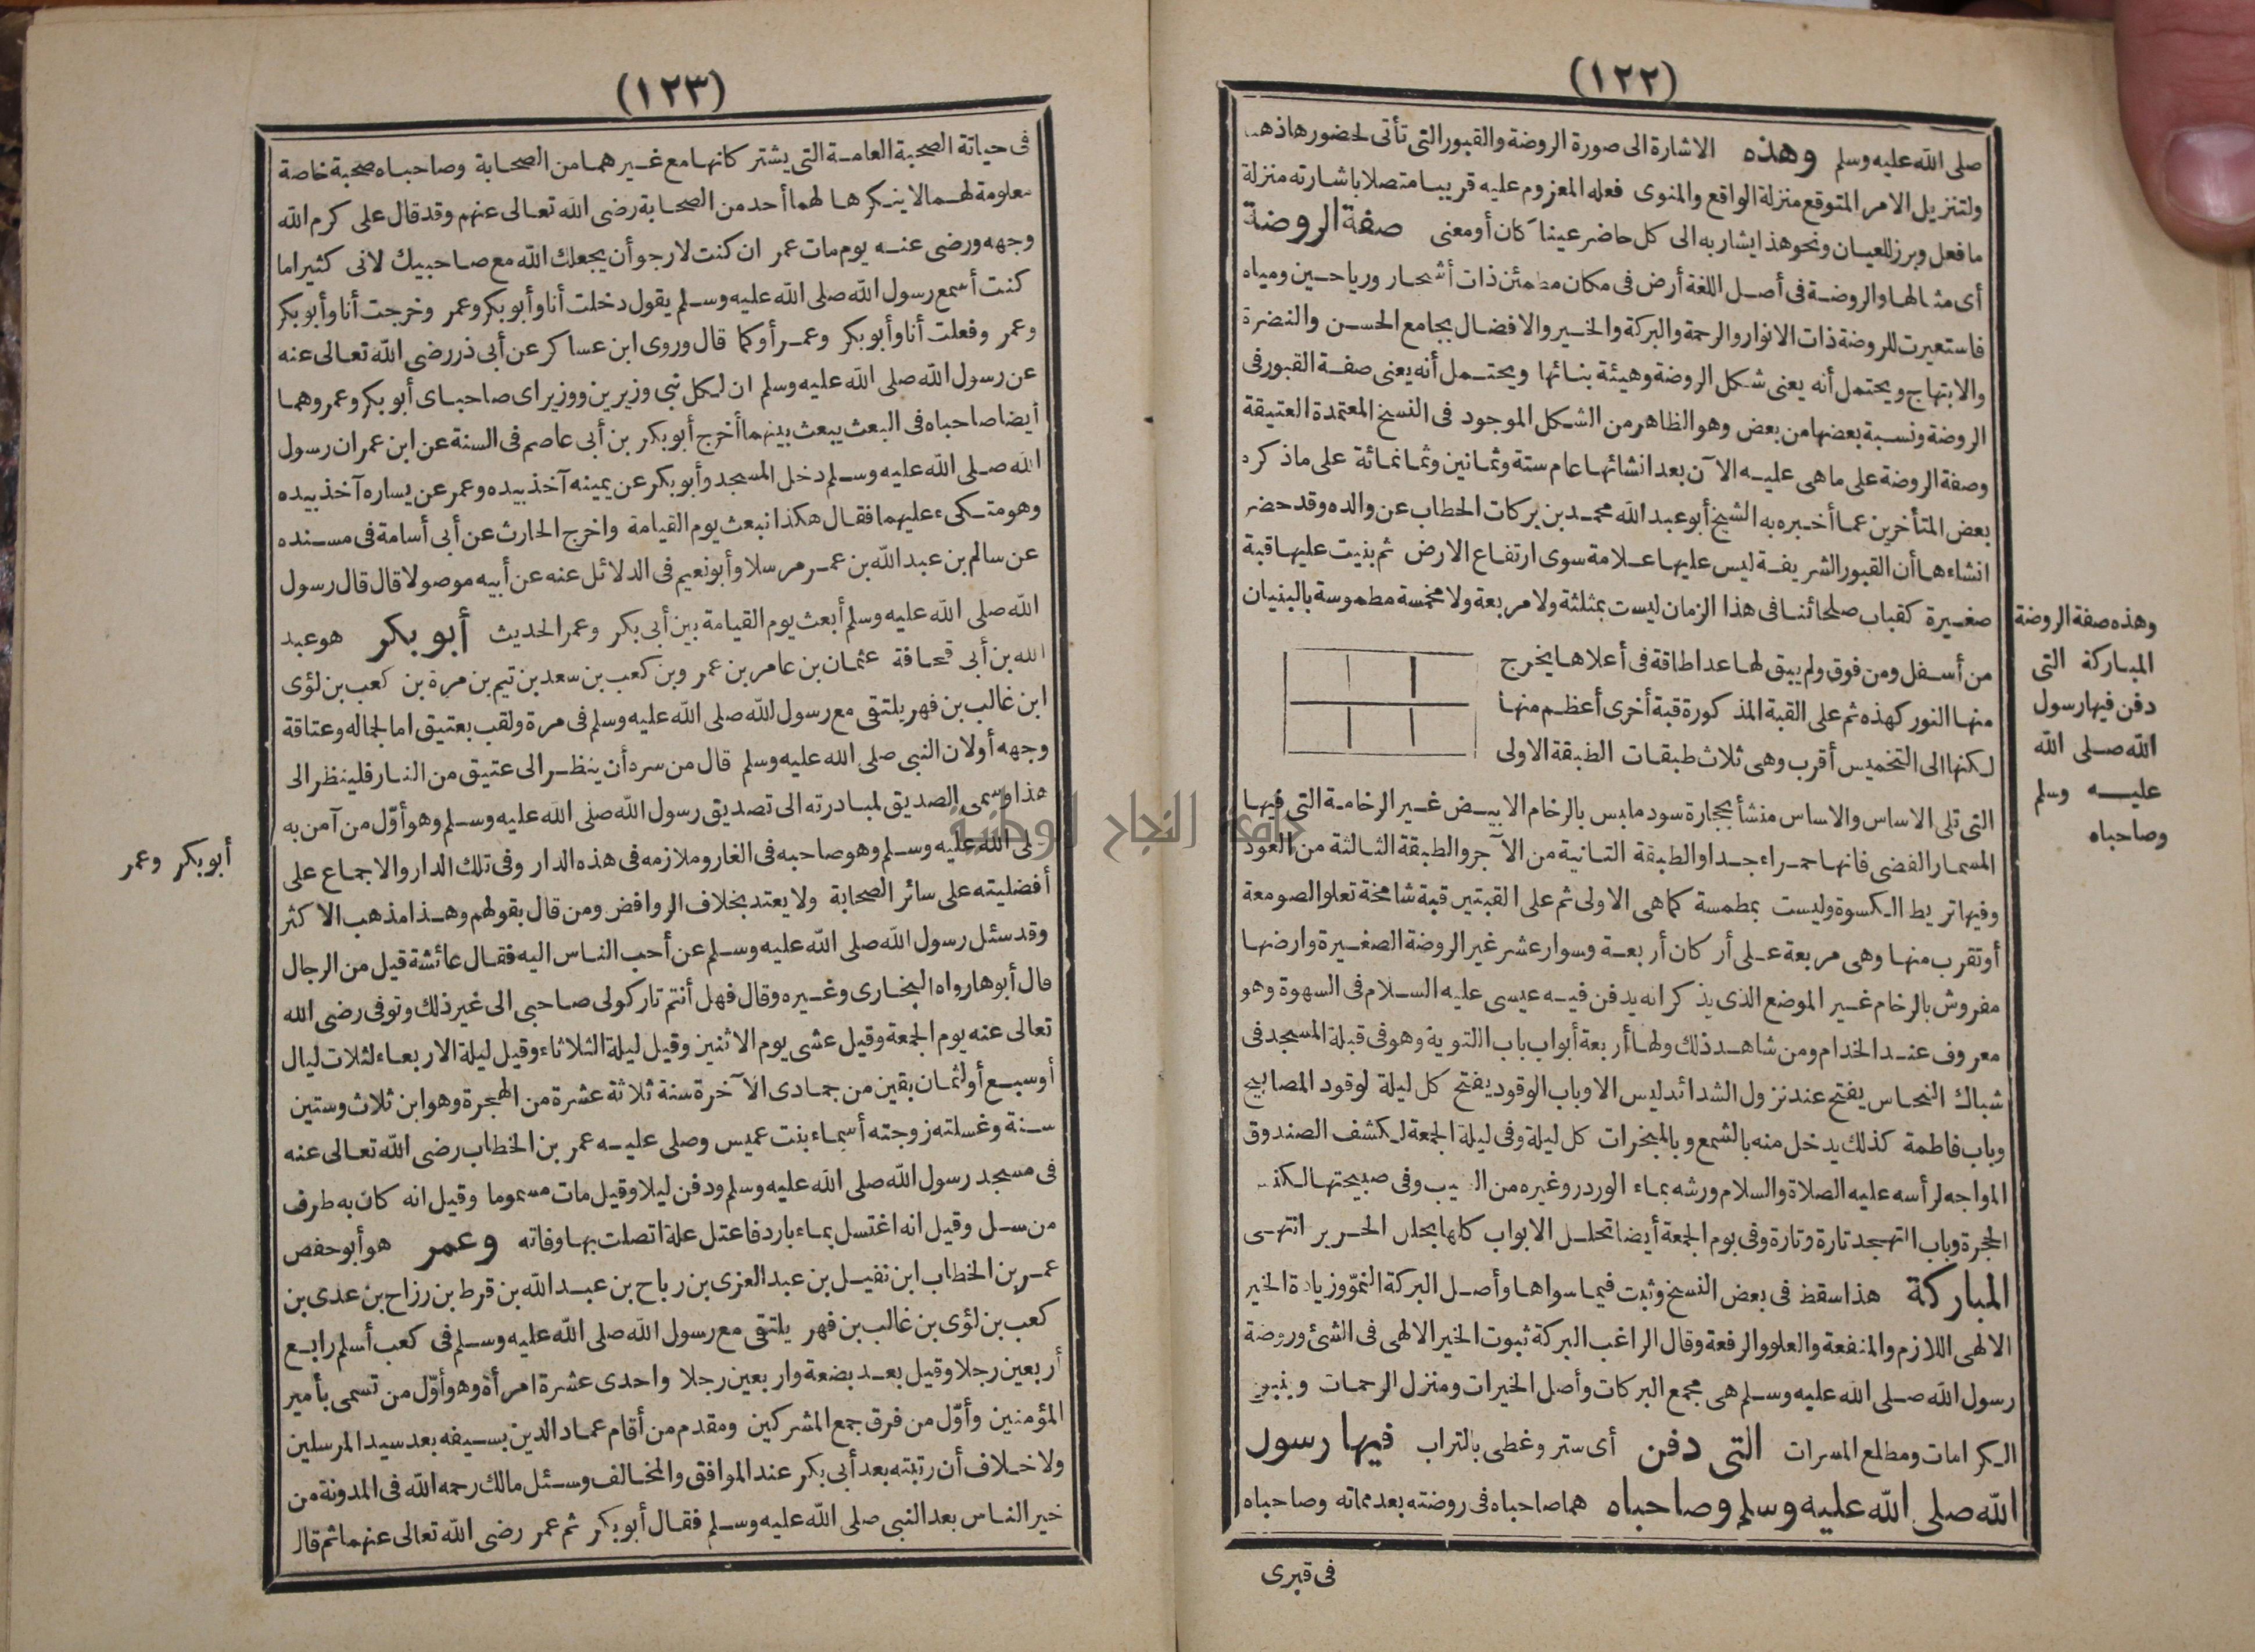 (١٢٢)
صلى الله عليه وسلم وهذه الاشارة الى صورة الروضة والقبور التى تأتى لحضورها ذهنا
ولتنزيل الامر المتوقع منزلة الواقع والمنوى فعله المعزوم عليه قريبا متصلا باشارته منزلة
ما فعل وبرز للعيان ونحو هذا يشار به الى كل حاضر عينا كان أو معنى صفة الروضة
أى مثالها والروضة فى أصل اللغة أرض فى مكان مطمئن ذات أشجار ورياحين ومياه
فاستعيرت للروضة ذات الانوار والرحمة والبركة والخير والافضال بجامع الحسن والنضرة
والابتهاج ويحتمل أنه يعنى شكل الروضة وهيئة بنائها ويحتمل أنه يعنى صفة القبور فى
الروضة ونسبة بعضها من بعض وهو الظاهر من الشكل الموجود فى النسخ المعتمدة العتيقة
وصفة الروضة على ما هى عليه الآن بعد انشائها عام ستة وثمانين وثمانمائة على ما ذكره
بعض المتأخرين عما أخبره به الشيخ أبو عبد الله محمد بن بركات الحطاب عن والده وقد حضر
انشاءها أن القبور الشريفة ليس عليها علامة سوى ارتفاع الارض ثم بنيت عليها قبة
صغيرة كقباب صلحائنا فى هذا الزمان ليست بمثلثة ولا مربعة ولا مخمسة مطموسة بالبنيان
من أسفل ومن فوق ولم يبق لها عدا طاقة فى أعلاها يخرج
منها النور كهذه ثم على القبة المذكورة قبة أخرى أعظم منها
لكنها الى التخميس أقرب وهى ثلاث طبقات الطبقة الاولى
التى تلى الاساس والاساس منشأ بحجارة سود مابس بالرخام الابيض غير الرخامة التى فيها
المسمار الفضى فانها حمراء جدا والطبقة الثانية من الآجر والطبقة الثالثة من العود
وفيها تربط الكسوة وليست بمطمسة كما هى الاولى ثم على القبتين قبة شامخة تعلو الصومعة
أو تقرب منها وهى مربعة على أركان أربعة وسوار عشر غير الروضة الصغيرة وارضها
مفروش بالرخام غير الموضع الذى يذكر انه يدفن فيه عيسى عليه السلام فى السهوة وهو
معروف عند الخدام ومن شاهد ذلك ولها أربعة أبواب باب التوبة وهو فى قبلة المسجد فى
شباك النحاس يفتح عند نزول الشدائد ليس الا وباب الوقود يفتح كل ليلة لوقود المصابيح
وباب فاطمة كذلك يدخل منه بالشمع وبالمبخرات كل ليلة وفى ليلة الجمعة لكشف الصندوق
المواجه لرأسه عليه الصلاة والسلام ورشه بماء الورد وغيره من الطيب وفى صبيحتها لكنس
الحجرة وباب التهجد تارة وتارة وفى يوم الجمعة أيضا تحلل الابواب كلها بحلل الحرير انتهى
المباركة هذا سقط فى بعض النسخ وثبت فيما سواها وأصل البركة النموّ وزيادة الخير
الالهى اللازم والمنفعة والعلو والرفعة وقال الراغب البركة ثبوت الخير الالهى فى الشئ وروضة
رسول الله صلى الله عليه وسلم هى مجمع البركات وأصل الخيرات ومنزل الرحمات
الكرامات ومطلع المسرات التى دفن أى ستر وغطى بالتراب فيها رسول
الله صلى الله عليه وسلم وصاحباه هما صاحباه فى روضته بعد مماته وصاحباه
فى قبرى
وهذه صفة الروضة
المباركة التى
دفن فيها رسول
الله صلى الله
عليه وسلم
وصاحباه
(١٢٣)
فى حياتة الصحبة العامة التى يشتركانها مع غيرهما من الصحابة وصاحباه صحبة خاصة
معلومة لهما لا ينكرها لهما أحد من الصحابة رضى الله تعالى عنهم وقد قال على كرم الله
وجهه ورضى عنه يوم مات عمر ان كنت لارجو أن يجعلك الله مع صاحبيك لانى كثيرا ما
كنت أسمع رسول الله صلى الله عليه وسلم يقول دخلت أنا وأبو بكر وعمر وخرجت أنا وأبو بكر
وعمر وفعلت أنا وأبو بكر وعمر أو كما قال وروى ابن عساكر عن أبى ذر رضى الله تعالى عنه
عن رسول الله صلى الله عليه وسلم ان لكل نبى وزيرين ووزيراى صاحباى أبو بكر وعمر وهما
أيضا صاحباه فى البعث يبعث بينهما أخرج أبو بكر بن أبى عاصم فى السنة عن ابن عمر ان رسول
الله صلى الله عليه وسلم دخل المسجد وأبو بكر عن يمينه آخذ بيده وعمر عن يساره آخذ بيده
وهو متكىء عليهما فقال هكذا نبعث يوم القيامة واخرج الحارث عن أبى أسامة فى مسنده
عن سالم بن عبد الله بن عمر مرسلا وأبو نعيم فى الدلائل عنه عن أبيه موصولا قال قال رسول
الله صلى الله عليه وسلم أبعث يوم القيامة بين أبى بكر وعمر الحديث أبو بكر هو عبد
الله بن أبى قحافة عثمان بن عامر بن عمر وبن كعب بن سعد بن تيم بن مرة بن كعب بن لؤى
ابن غالب بن فهر يلتقى مع رسول الله صلى الله عليه وسلم فى مرة ولقب بعتيق اما لجماله وعتاقة
وجهه أو لان النبى صلى الله عليه وسلم قال من سره أن ينظر الى عتيق من النار فلينظر الى
هذا وسمى الصديق لمبادرته الى تصديق رسول الله صلى الله عليه وسلم وهو أوّل من آمن به
صلى الله عليه وسلم وهو صاحبه فى الغار وملازمه فى هذه الدار وفى تلك الدار والاجماع على
أفضليته على سائر الصحابة ولا يعتد بخلاف الروافض ومن قال بقولهم وهذا مذهب الاكثر
وقد سئل رسول الله صلى الله عليه وسلم عن أحب الناس اليه فقال عائشة قيل من الرجال
قال أبوها رواه البخارى وغيره وقال فهل أنتم تاركولى صاحبى الى غير ذلك وتوفى رضى الله
تعالى عنه يوم الجمعة وقيل عشى يوم الاثنين وقيل ليلة الثلاثاء وقيل ليلة الاربعاء لثلاث ليال
أو سبع أو لثمان بقين من جمادى الآخرة سنة ثلاثة عشرة من الهجرة وهو ابن ثلاث وستين
سنة وغسلته زوجته أسماء بنت عميس وصلى عليه عمر بن الخطاب رضى الله تعالى عنه
فى مسجد رسول الله صلى الله عليه وسلم ودفن ليلا وقيل مات مسموما وقيل انه كان به طرف
من سل وقيل انه اغتسل بماء بارد فاعتل علة اتصلت بها وفاته وعمر هو أبو حفص
عمر بن الخطاب ابن نفيل بن عبد العزى بن رباح بن عبد الله بن قرط بن رزاح بن عدى بن
كعب بن لؤى بن غالب بن فهر يلتقى مع رسول الله صلى الله عليه وسلم فى كعب أسلم رابع
أربعين رجلا وقيل بعد بضعة واربعين رجلا واحدى عشرة امرأة وهو أوّل من تسمى بأمير
المؤمنين وأوّل من فرق جمع المشركين ومقدم من أقام عماد الدين بسيفه بعد سيد المرسلين
ولا خلاف أن رتبته بعد أبى بكر عند الموافق والمخالف وسئل مالك رحمه الله فى المدونة من
خير الناس بعد النبى صلى الله عليه وسلم فقال أبو بكر ثم عمر رضى الله تعالى عنهما ثم قال
أبو بكر وعمر
جامعة النجاح الوطنية